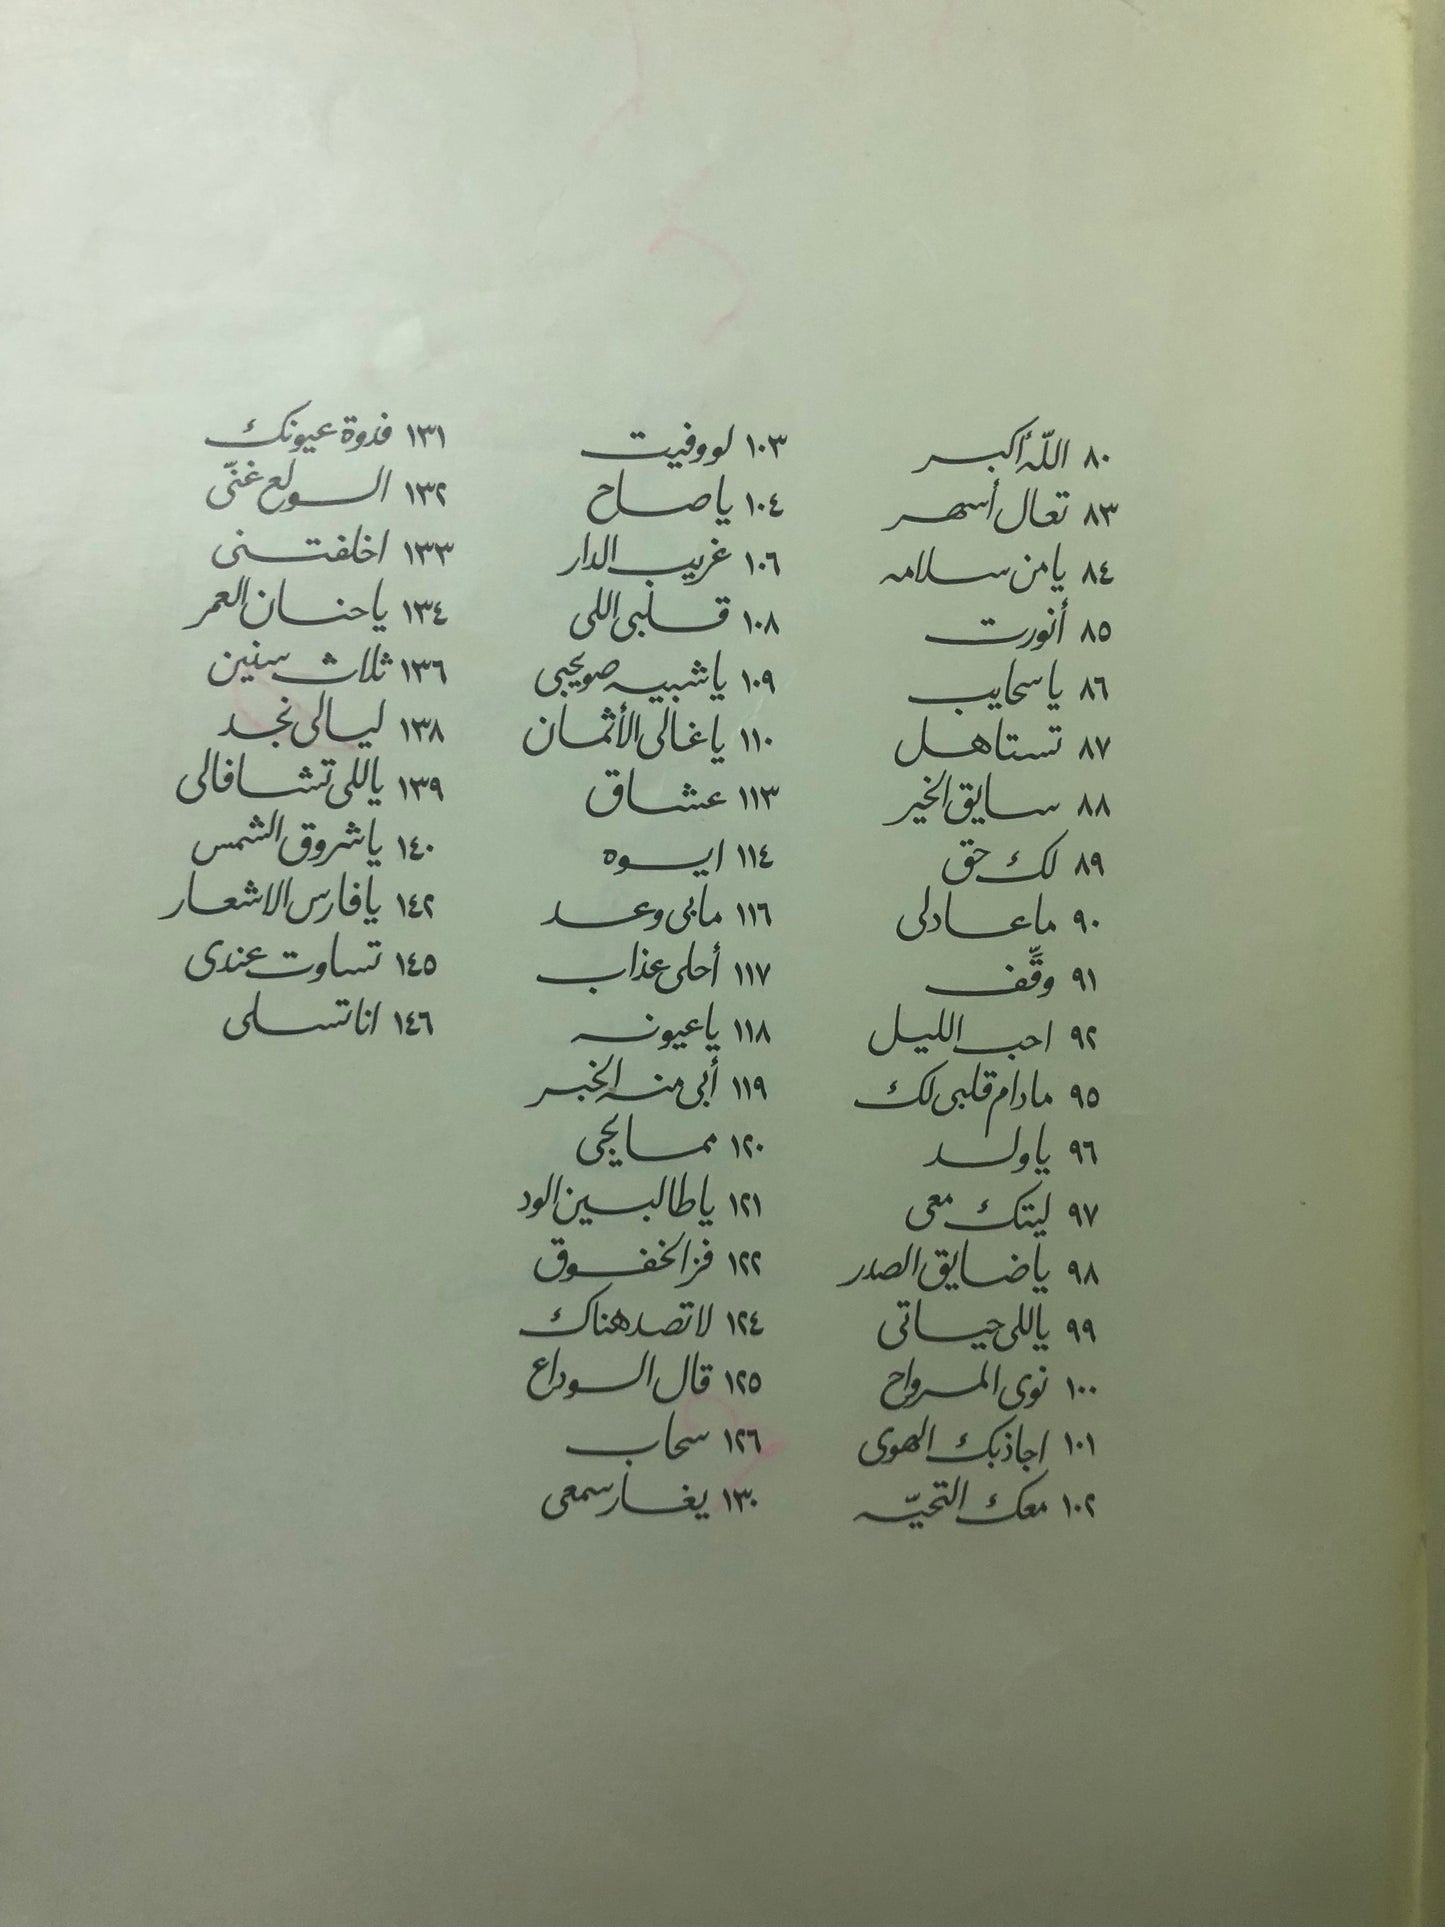 ٨٠ اللّه أكبر
٨٣ تعال أسهر
٨٤ يا من سلامه
٨٥ أنورت
٨٦ يا سحايب
٨٧ تستاهل
٨٨ سايق الخير
٨٩ لك حق
٩٠ ما عادلى
٩١ وقِّف
٩٢ احب الليل
٩٥ مادام قلبى لك
٩٦ يا ولد
٩٧ ليتك معى
٩٨ يا ضايق الصدر
٩٩ ياللى حياتى
١٠٠ نوى المرواح
١٠١ اجاذبك الهوى
١٠٢ معك التحيّه
١٠٣ لو وفيت
١٠٤ يا صاح
١٠٦ غريب الدار
١٠٨ قلبى اللى
١٠٩ يا شبيه صويحبى
١١٠ يا غالى الأثمان
١١٣ عشاق
١١٤ ايوه
١١٦ مابى وعد
١١٧ أحلى عذاب
١١٨ يا عيونه
١١٩ أبى منه الخبر
١٢٠ مما يجى
١٢١ يا طالبين الود
١٢٢ فز الخفوق
١٢٤ لا تصد هناك
١٢٥ قال الوداع
١٢٦ سحاب
١٣٠ يغار سمعى
١٣١ فدوة عيونك
١٣٢ الولع غنّى
١٣٣ اخلفتنى
١٣٤ يا حنان العمر
١٣٦ ثلاث سنين
١٣٨ ليالى نجد
١٣٩ ياللى تشافالى
١٤٠ يا شروق الشمس
١٤٢ يا فارس الاشعار
١٤٥ تساوت عندى
١٤٦ انا تسلى